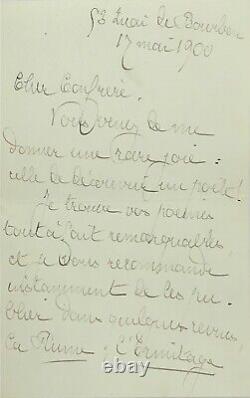 53 Quai de Bourbon
17 mai 1900
Cher Confrère,
Vous venez de me
donner une rare joie :
celle de découvrir un poète !
Je trouve vos poèmes
tout à fait remarquables,
et je vous recommande
instamment de les pu-
blier dans quelques revues,
La Plume, l'Ermitage
© ebay